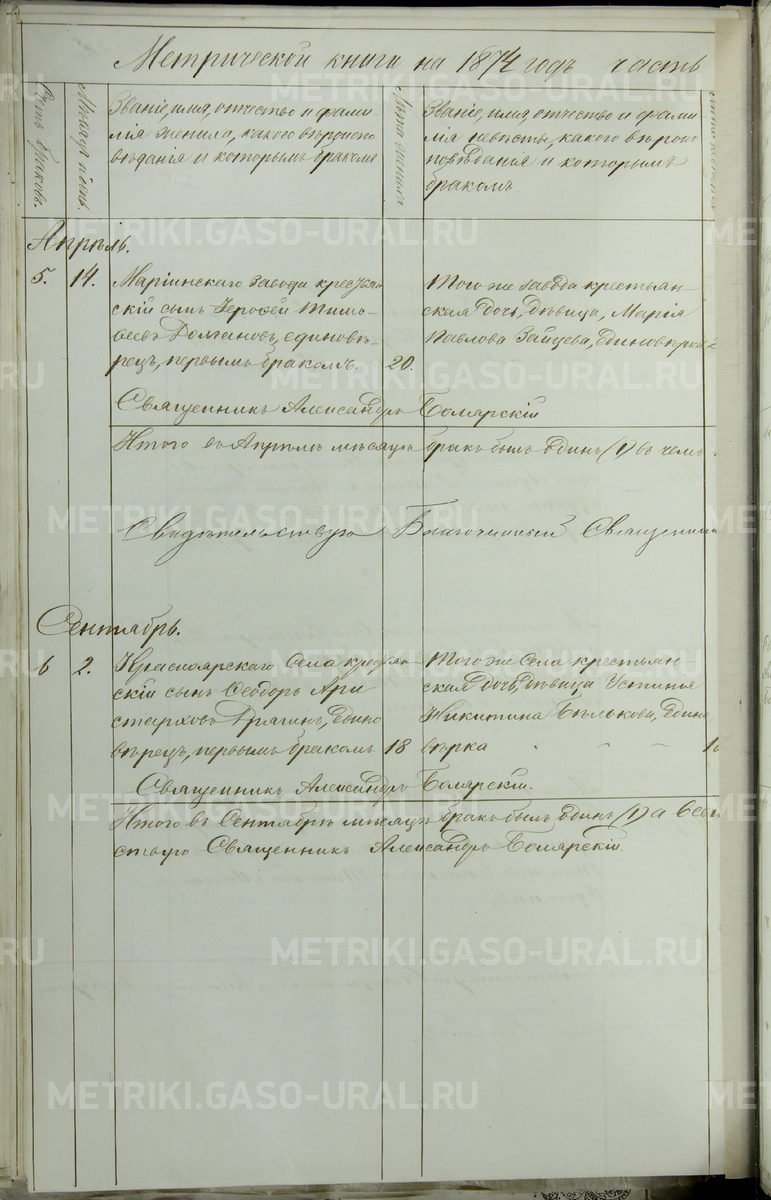 Метрической книги на 1874 годъ часть
Счетъ браковъ.
Мѣсяцъ и день.
Званіе, имя, отчество и фами
лія жениха, какого вѣроиспо
вѣданія и которымъ бракомъ.
Лѣта жениха
Званіе, имя, отчество и фами
лія невѣсты, какого вѣроис
повѣданія и которымъ
бракомъ.
Апрѣль.
5. 14. Маріинскаго завода крестьян
скій сынъ Іерофей Тимо
феевъ Долгановъ, единовѣ
рецъ, первымъ бракомъ. 20.
Того же завода крестьян
ская дочь, дѣвица, Марія
Павлова Зайцева, единовѣрка
Священникъ Александръ Боярскій
Итого въ Апрѣлѣ мѣсяцѣ бракъ былъ одинъ (1) въ чемъ
Свидѣтельствую Благочинный Священник
Сентябрь.
6 2. Красноярскаго села крестьян
скій сынъ Ѳеодоръ Ари
старховъ Дрягинъ, едино
вѣрецъ, первымъ бракомъ 18
Того же села крестьян
ская дочь, дѣвица Устинія
Никитина Бѣлькова, едино
вѣрка
Священникъ Александръ Боярскій.
Итого въ Сентябрѣ мѣсяцѣ бракъ былъ одинъ (1)
ствую Священникъ Александръ Боярскій
METRIKI.GASO-URAL.RU